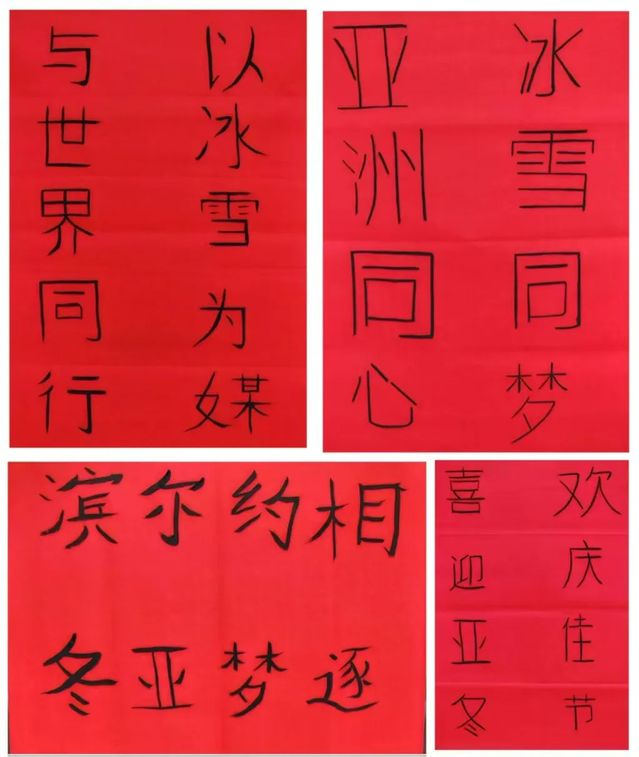 以冰雪为媒
与世界同行
冰雪同梦
亚洲同心
相约尔滨
逐梦亚冬
欢庆佳节
喜迎亚冬